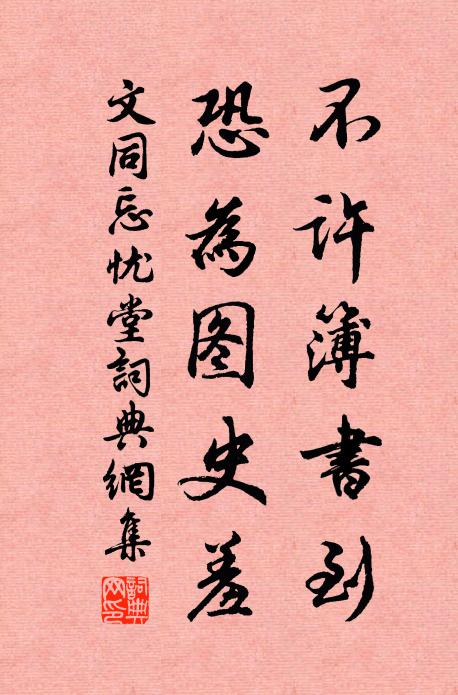 不许簿書到
恐為图史羞
文同忘忧堂詞典網集
詞典网印